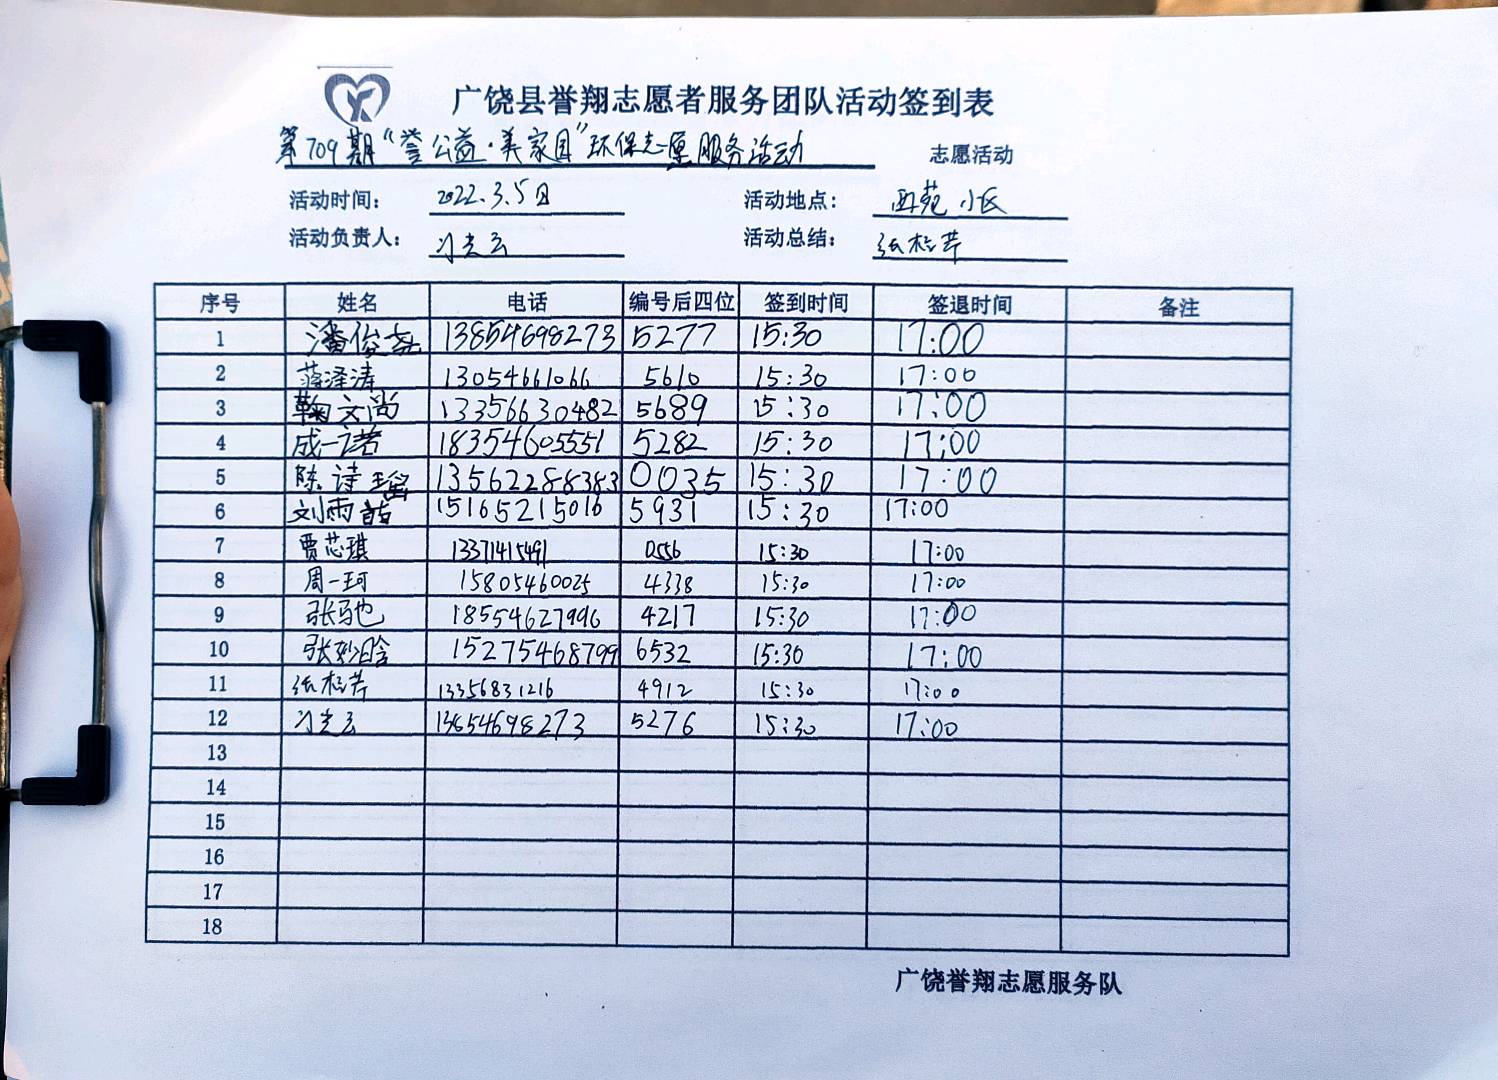 广饶县誉翔志愿者服务团队活动签到表
第709期“誉公益·美家园”环保志愿服务活动 志愿活动
活动时间： 2022.3.5日 活动地点： 西苑小区
活动负责人： 活动总结：
序号 姓名 电话 编号后四位 签到时间 签退时间 备注
1 潘俊尧 13854698273 5277 15:30 17:00
2 蒋泽涛 13054661066 5610 15:30 17:00
3 鞠文尚 13356630482 5689 15:30 17:00
4 成一诺 18354605551 5282 15:30 17:00
5 陈诗瑶 13562288383 0035 15:30 17:00
6 刘雨喆 15165215016 5931 15:30 17:00
7 贾芯琪 13371415491 0556 15:30 17:00
8 周一珂 15805460025 4338 15:30 17:00
9 张驰 18554627996 4217 15:30 17:00
10 张妙晗 15275468799 6532 15:30 17:00
11 13356831216 4912 15:30 17:00
12 13854698273 5276 15:30 17:00
13
14
15
16
17
18
广饶誉翔志愿服务队